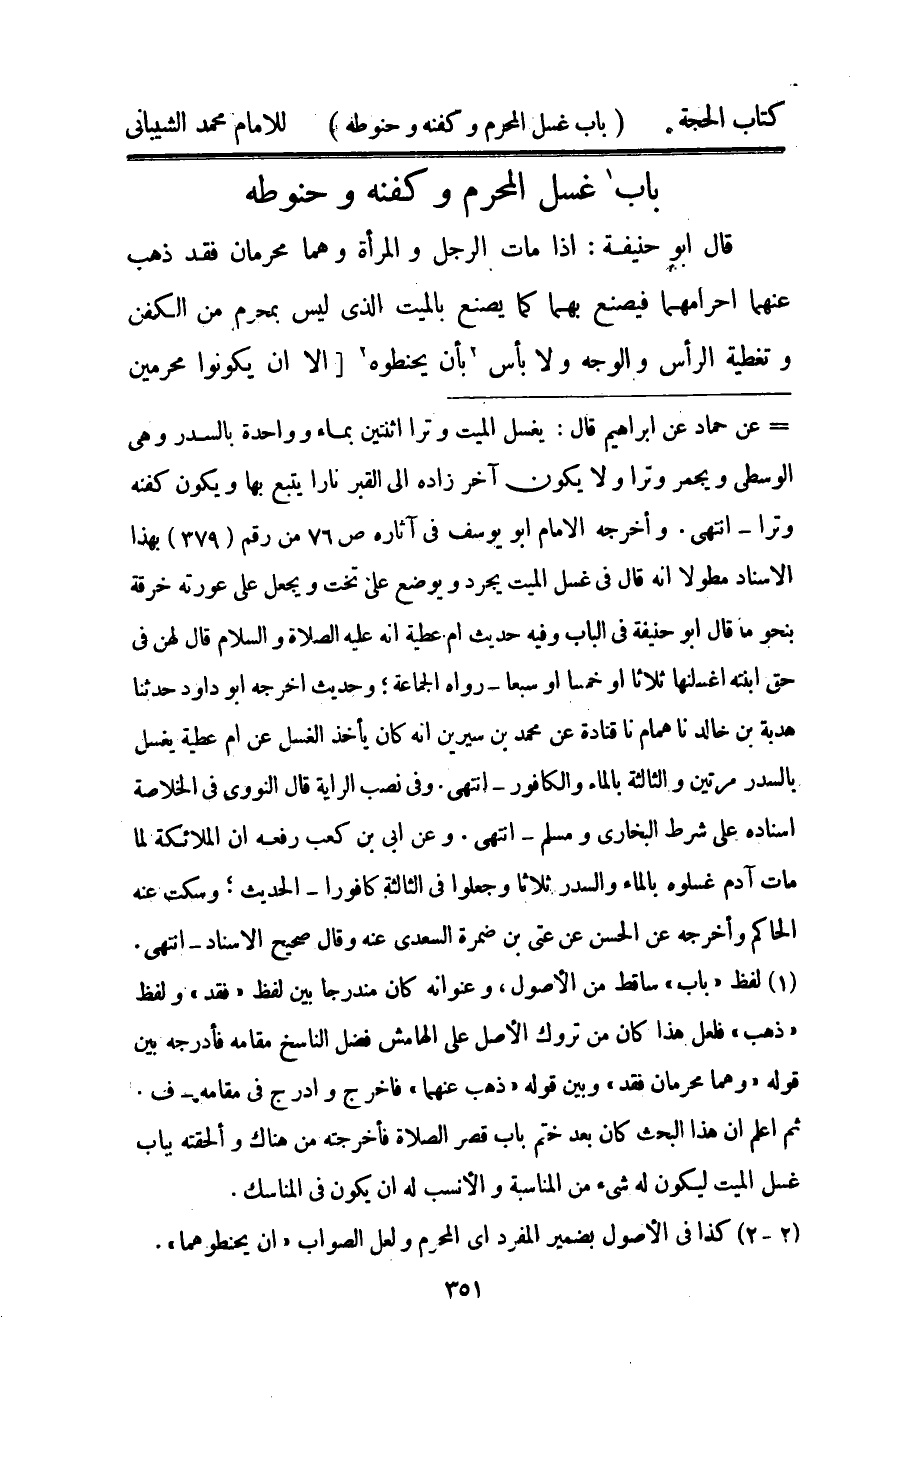 كتاب الحجة . ( باب غسل المحرم و كفنه و حنوطه ) للامام محمد الشيبانى
باب١ غسل المحرم و كفنه و حنوطه
قال ابو حنيفة : اذا مات الرجل و المرأة و هما محرمان فقد ذهب
عنهما احرامهما فيصنع بهما كما يصنع بالميت الذى ليس بمحرم من الكفن
و تغطية الرأس و الوجه و لا بأس ٢بأن يحنطوه٢ [ الا ان يكونوا محرمين
= عن حماد عن ابراهيم قال : يغسل الميت و ترا اثنتين بماء و واحدة بالسدر و هى
الوسطى و يجمر وترا و لا يكون آخر زاده الى القبر نارا يتبع بها و يكون كفنه
وترا - انتهى . و أخرجه الامام ابو يوسف فى آثاره ص ٧٦ من رقم ( ٣٧٩ ) بهذا
الاسناد مطولا انه قال فى غسل الميت يجرد و يوضع على تخت و يجعل على عورته خرقة
بنحو ما قال ابو حنيفة فى الباب وفيه حديث ام عطية انه عليه الصلاة و السلام قال لهن فى
حق ابنته اغسلنها ثلاثا او خمسا او سبعا - رواه الجماعة ؛ وحديث اخرجه ابو داود حدثنا
هدبة بن خالد نا همام نا قتادة عن محمد بن سيرين انه كان يأخذ الغسل عن ام عطية يغسل
بالسدر مرتين و الثالثة بالماء والكافور - انتهى . وفى نصب الراية قال النووى فى الخلاصة
اسناده على شرط البخارى و مسلم - انتهى . و عن ابى بن كعب رفعه ان الملائكة لما
مات آدم غسلوه بالماء والسدر ثلاثا وجعلوا فى الثالثة كافورا - الحديث ؛ وسكت عنه
الحاكم وأخرجه عن الحسن عن عتى بن ضمرة السعدى عنه وقال صحيح الاسناد - انتهى .
(١) لفظ «باب» ساقط من الأصول ، و عنوانه كان مندرجا بين لفظ «فقد» و لفظ
«ذهب» فلعل هذا كان من تروك الأصل على الهامش فضل الناسخ مقامه فأدرجه بين
قوله «وهما محرمان فقد» وبين قوله «ذهب عنهما» فاخرج و ادرج فى مقامه - ف .
ثم اعلم ان هذا البحث كان بعد ختم باب قصر الصلاة فأخرجته من هناك و ألحقته بباب
غسل الميت ليكون له شىء من المناسبة و الأنسب له ان يكون فى المناسك .
(٢ - ٢) كذا فى الأصول بضمير المفرد اى المحرم و لعل الصواب «ان يحنطوهما» .
٣٥١